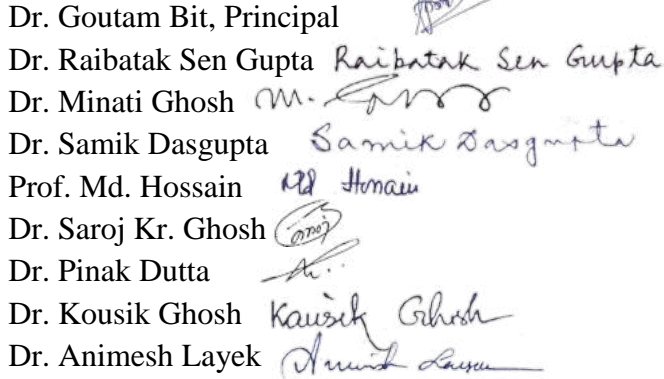 Dr. Goutam Bit, Principal
Dr. Raibatak Sen Gupta Raibatak Sen Gupta
Dr. Minati Ghosh M.
Dr. Samik Dasgupta Samik Dasgupta
Prof. Md. Hossain Md Hossain
Dr. Saroj Kr. Ghosh
Dr. Pinak Dutta
Dr. Kousik Ghosh Kausik Ghosh
Dr. Animesh Layek